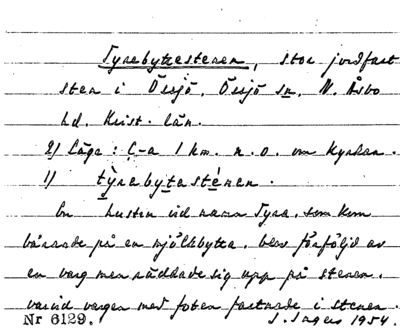 Tyrebyttestenen, stor jordfast
sten i Örsjö, Örsjö sn, N. Åsbo
hd. Krist. län.
2) Läge: C-a 1 km. n. o. om kyrkan.
1) týrebytasténen.
En hustru vid namn Tyra, som kom
bärande på en mjölkbytta, blev förföljd av
en varg men räddade sig upp på stenen.
varvid vargen med foten fastnade i stenen.
Nr 6129. S. Ingers 1954.